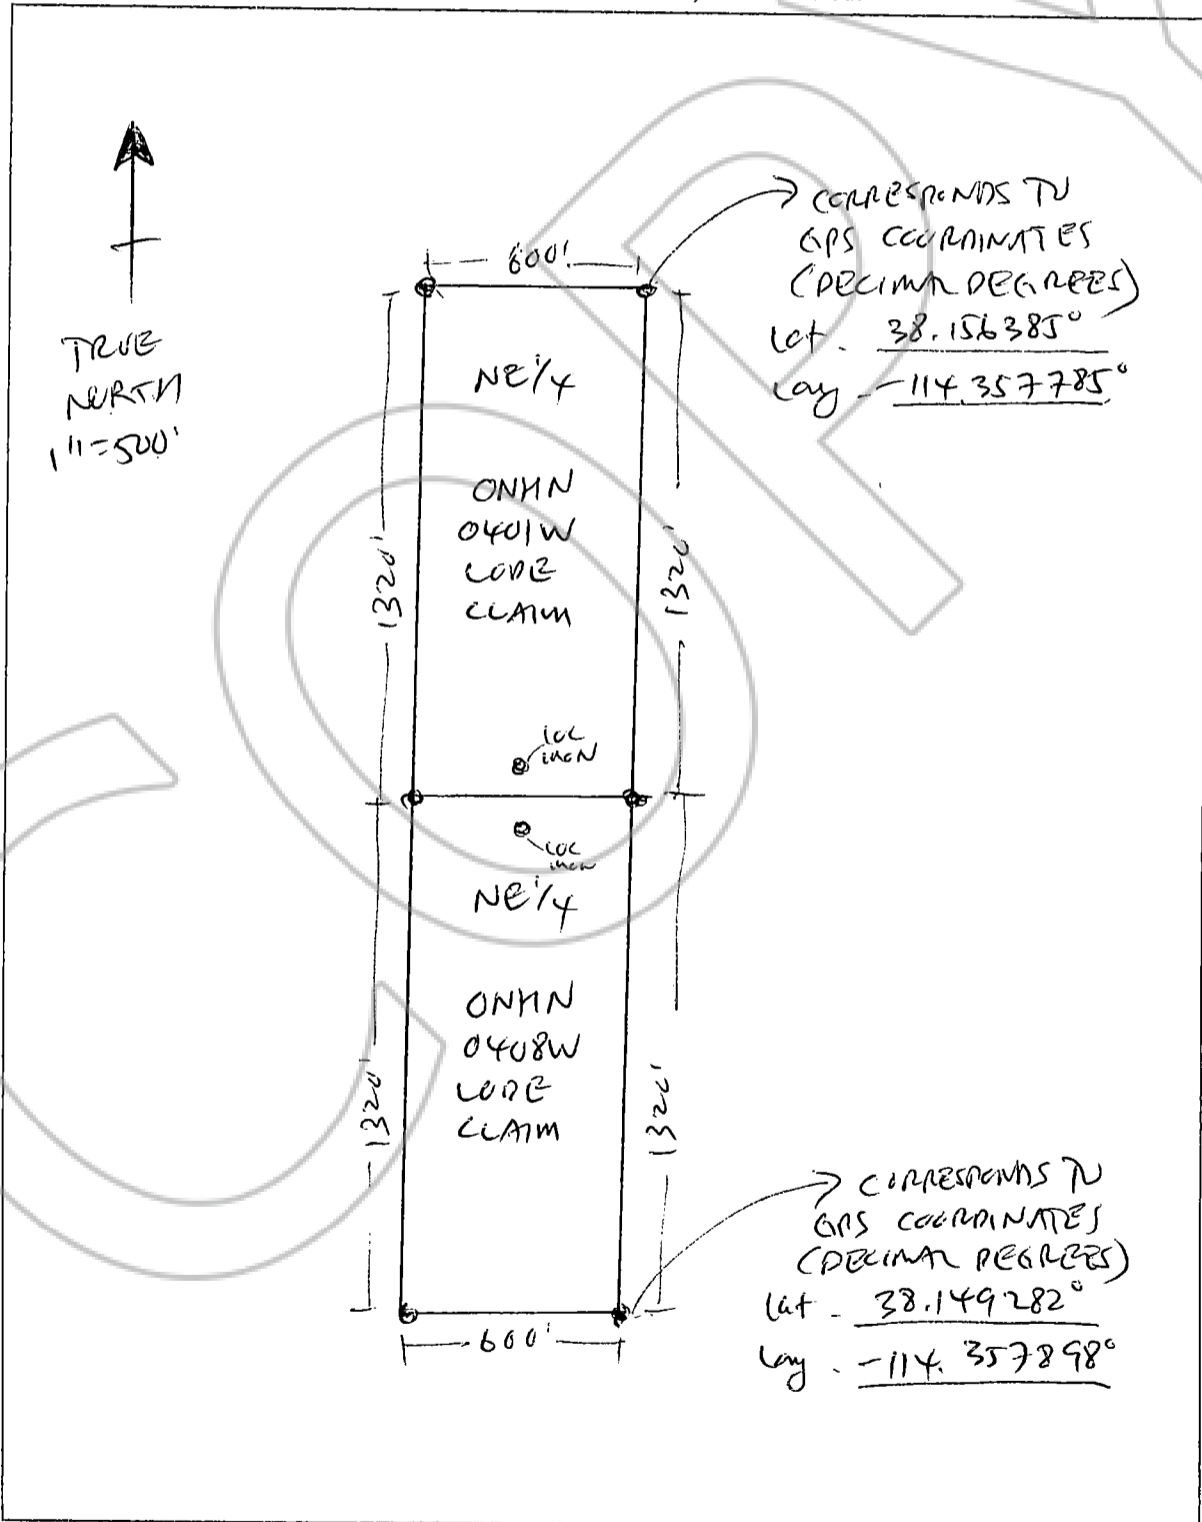 600'
CORRESPONDS TO
GPS COORDINATES
(DECIMAL DEGREES)
lat. 38.156385°
long -114.357785°
TRUE
NORTH
1"=500'
NE 1/4
ONHN
0401W
LODE
CLAIM
1320'
1320'
LOC
MON
LOC
MON
NE 1/4
ONHN
0408W
LODE
CLAIM
1320'
1320'
CORRESPONDS TO
GPS COORDINATES
(DECIMAL DEGREES)
lat. 38.149282°
long. -114.357898°
600'
COP